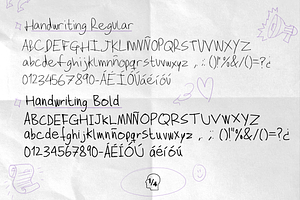 Handwriting Regular
ABCDEFGHIJKLMNÑOPQRSTUVWXYZ
abcdefghijklmnñopqrstuvwxyz , ; ()!"%&/()=?¿
01234567890-ÁÉÍÓÚáéíóú
Handwriting Bold
ABCDEFGHIJKLMNÑOPQRSTUVWXYZ
abcdefghijklmnñopqrstuvwxyz , ; ()!"%&/()=?¿
01234567890-ÁÉÍÓÚ áéíóú